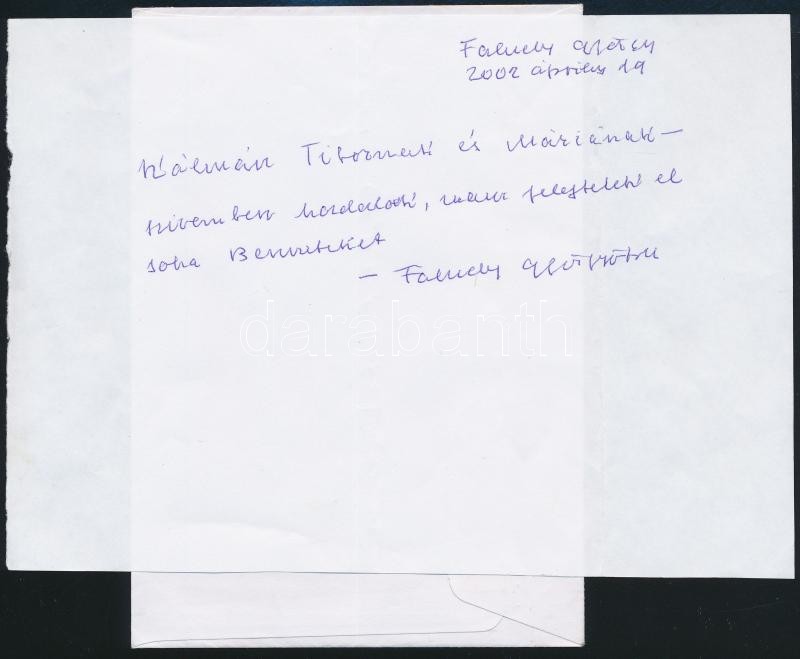 Faludy György
2002 április 19
Kálmán Tibornak és Máriának –
szivemben hordalak, nem felejtelek el
soha Benneteket
– Faludy György
darabanth